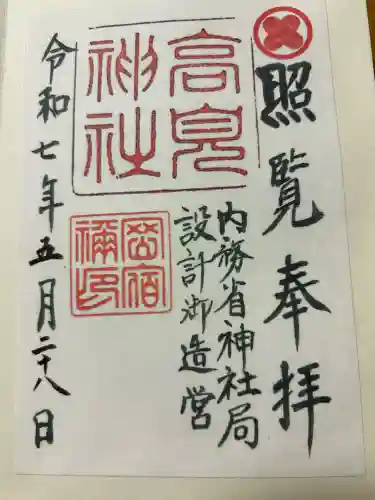 照覧奉拝
内務省神社局
設計御造営
高見
神社
令和七年五月二十八日